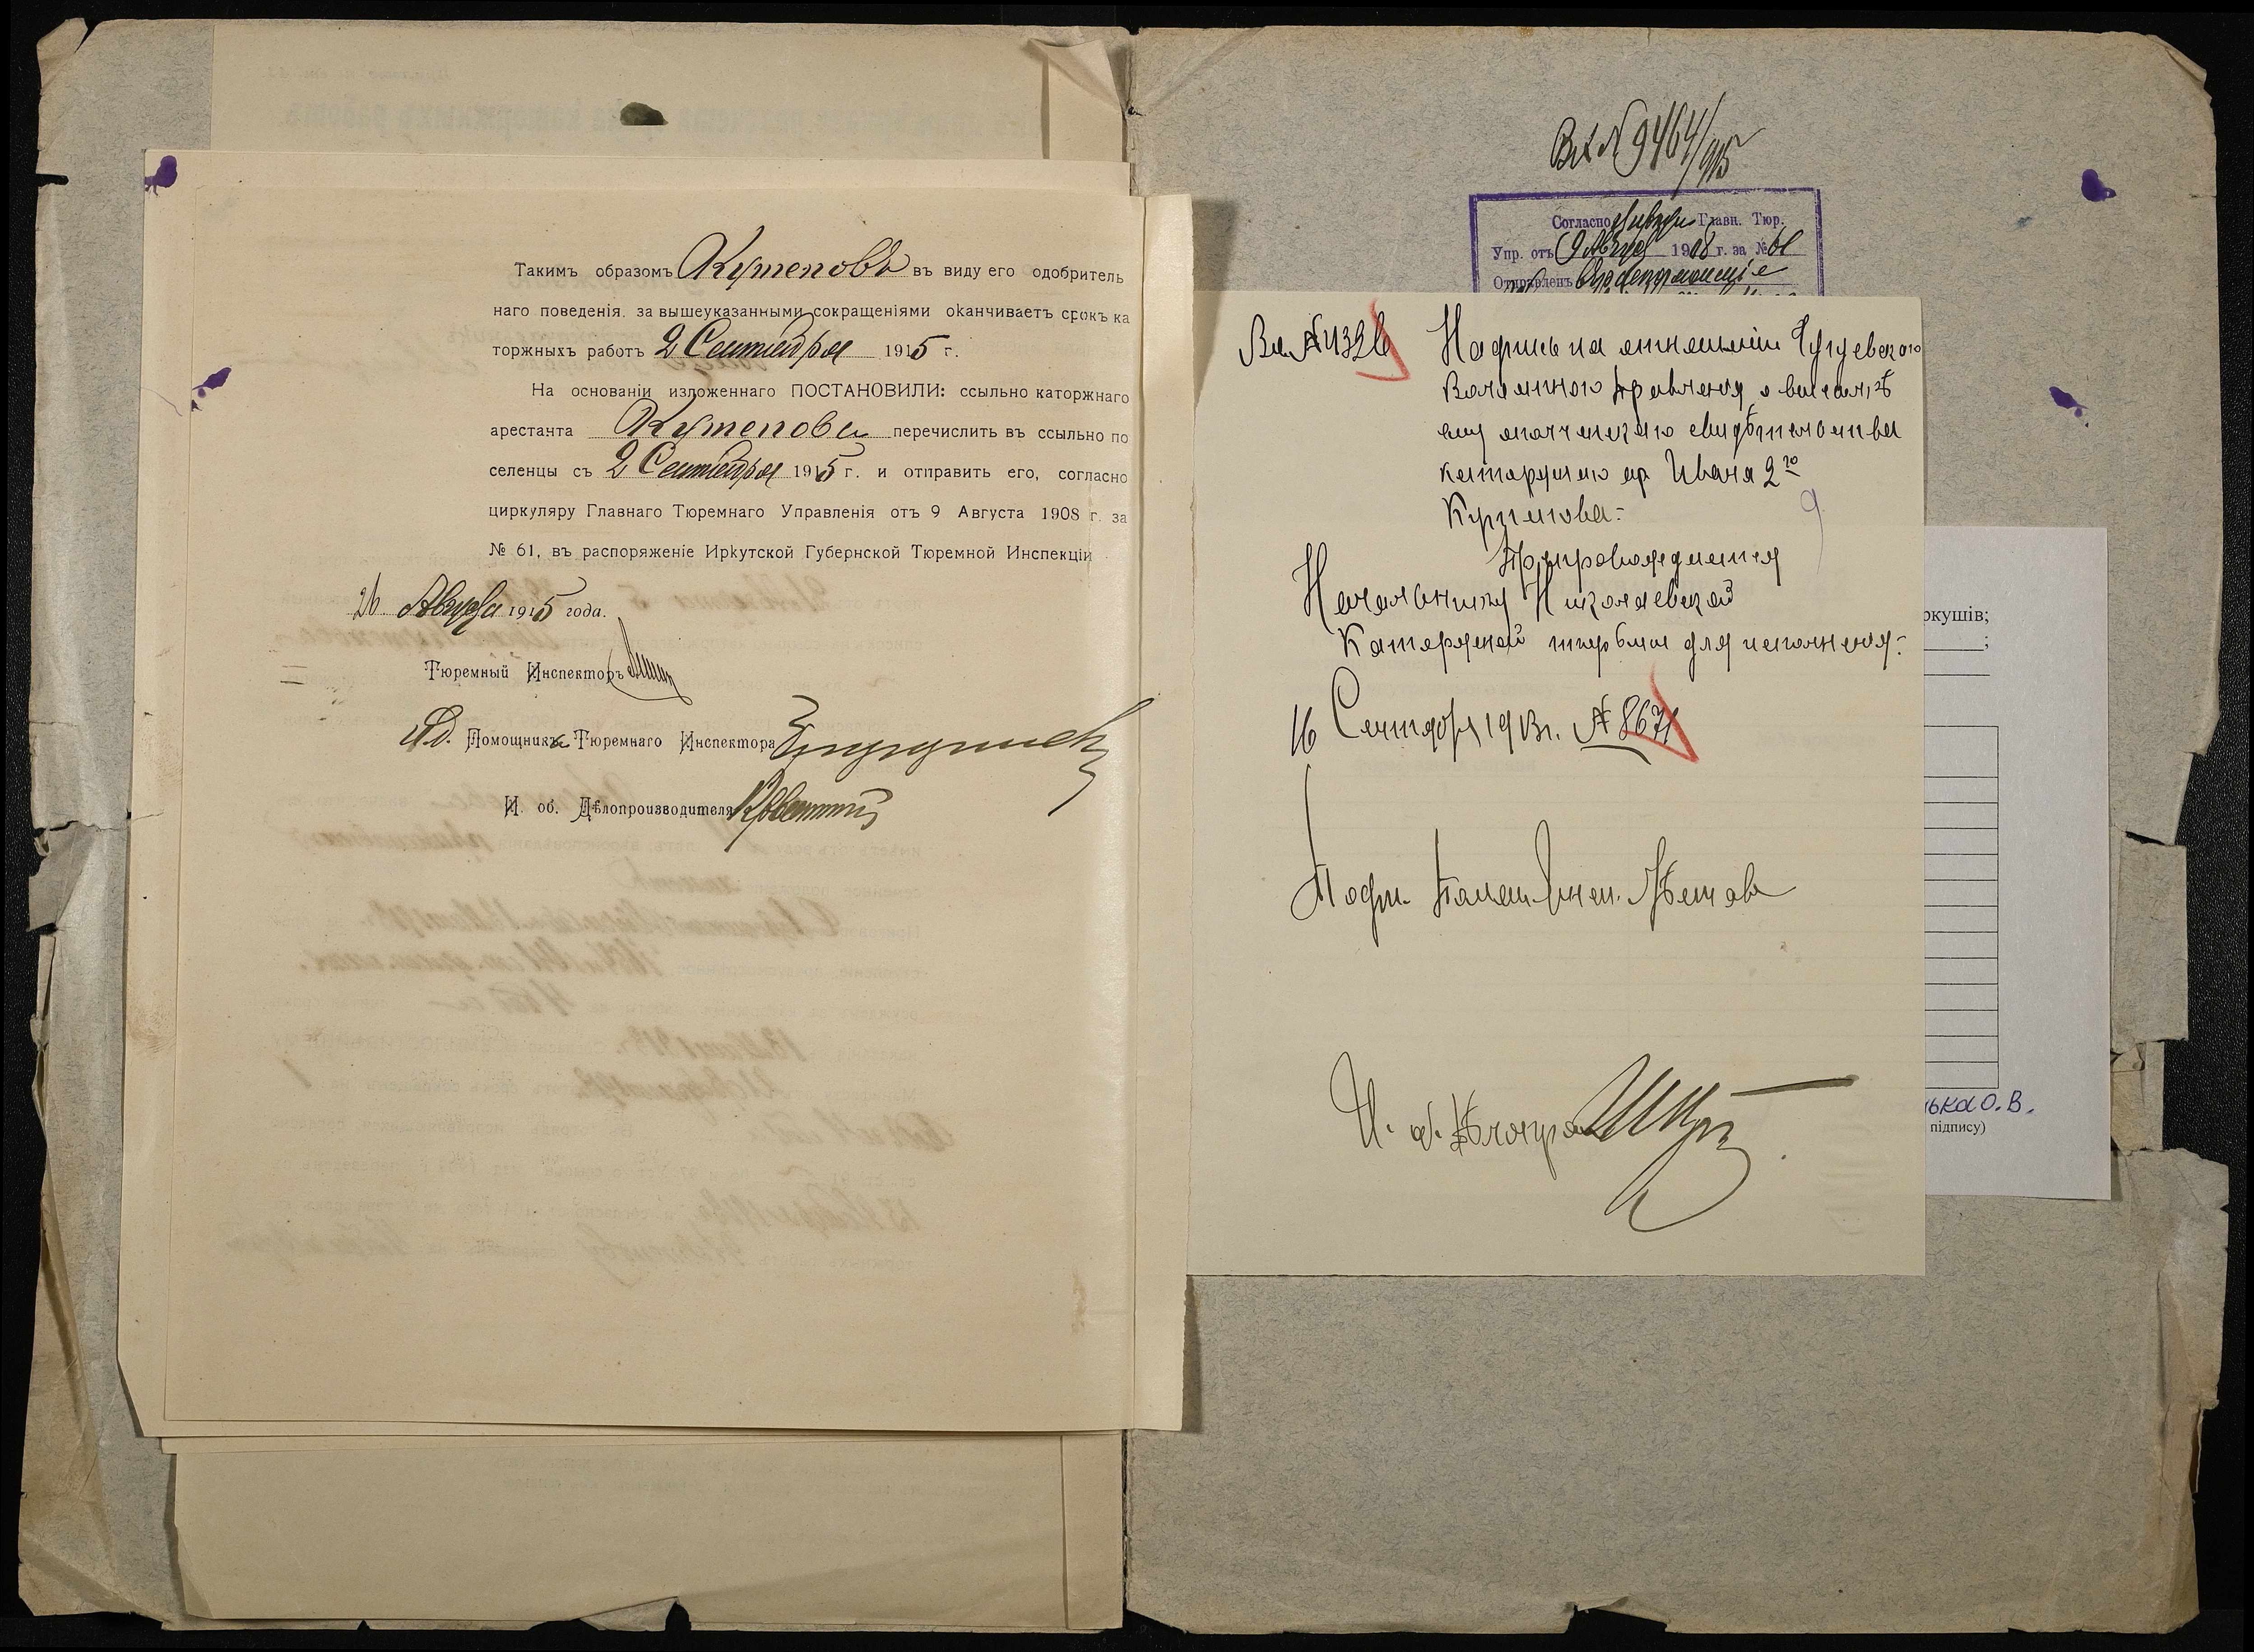 Такимъ образомъ Кутеповъ въ виду его одобритель
наго поведенія, за вышеуказанными сокращеніями оканчиваетъ срокъ ка
торжныхъ работъ 2 Сентября 1915 г.
На основаніи изложеннаго ПОСТАНОВИЛИ: ссыльно каторжнаго
арестанта Кутепова перечислить въ ссыльно по
селенцы съ 2 Сентября 1915 г. и отправить его, согласно
циркуляру Главнаго Тюремнаго Управленія отъ 9 Августа 1908 г. за
№ 61, въ распоряженіе Иркутской Губернской Тюремной Инспекціи
26 Августа 1915 года.
Тюремный Инспекторъ
Помощника Тюремнаго Инспектора
И. об. Дѣлопроизводителя
Вх №9464/915
Согласно Главн. Тюр.
Упр. отъ 9 Августа 1908 г. за № 61
Отправленъ
Вх. №4326
Надпись на отношеніи Чугуевскаго
Волостного Правленія о высылкѣ
ему свидѣтельства
каторжнаго Ивана 2го
Кутепова.
9
Препровождается
Начальнику Николаевской
Каторжной тюрьмы для исполненія.
16 Сентября 1913г. № 8671
Подп. Инсп.
И. об.
ркушів;
;
ька О. В.
підпису)